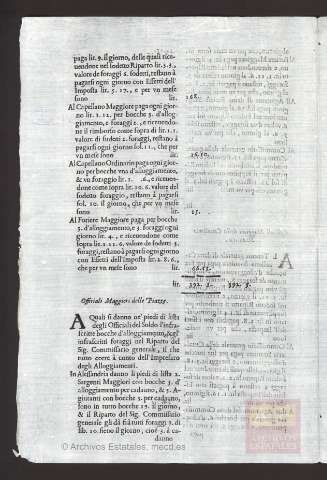 paga lir. 9. il giorno, delle quali rice-
uendone nel sodetto Riparto lir. 3. 3.
valore de foraggi 2. sodetti, restano à
pagarsi ogni giorno con Effetti dell'
Imposta lir. 5. 17., e per vn mese
sono lir.
Al Capellano Maggiore paga ogni gior-
no per bocche 3. d'allog-
giamento, e foraggi 2., e riceuendo-
ne il rimborso come sopra di lir. 1. 1.
valore di sudetti 2. foraggi, restano à
pagarsi ogni giorno sol. 11., che per
vn mese sono lir. 26. 10.
Al Capellano Ordinario paga ogni gior-
no per bocche vna d'alloggiamento,
& vn foraggio lir. 1. , e riceuen-
done come sopra lir. 10. 6. valore del
sodetto foraggio, restano à pagarsi
sol. 10. il giorno, che per vn mese
sono lir. 15.
Al Foriere Maggiore paga per bocche
3. d'alloggiamento, e 3. foraggi ogni
giorno lir. 4., e riceuendone come
sopra lir. 1. 11. 6. valore de sodetti 3.
foraggi, restano à pagarsi ogni giorno
con Effetti dell'Imposta lir. 2. 8. 6.,
che per vn mese sono lir.
lir. 393. 5.
Officiali Maggiori delle Piazze.
A Quali si danno ne' piedi di lista
degli Officiali del Soldo l'infra-
scritte bocche d'alloggiamento, & gl'
infrascritti foraggi nel Riparto del
Sig. Commissario generale, il che
tutto corre à conto dell'Impresaro
degli Alloggiamenti.
In Alessandria danno li piedi di lista 2.
Sergenti Maggiori con bocche 5. d'
alloggiamento per cadauno, & 3. Ag-
giutanti con bocche 3. per cadauno,
sono in tutto bocche 19. il giorno,
& il Riparto del Sig. Commissario
generale gli dà frà tutti foraggi 9. di
lir. 10. fieno il giorno, cioè 3. à ca-
dauno
© Archivos Estatales, mecd.es
ARCHIVOS
ESTATALES